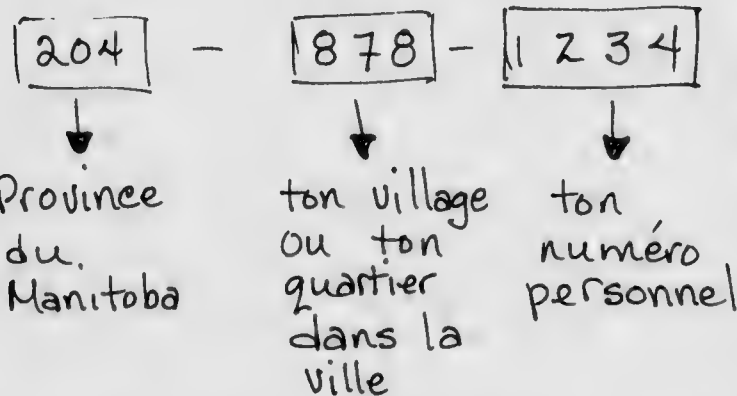 204 - 878 - 1 2 3 4
Province
du.
Manitoba
ton village
ou ton
quartier
dans la
ville
ton
numéro
personnel